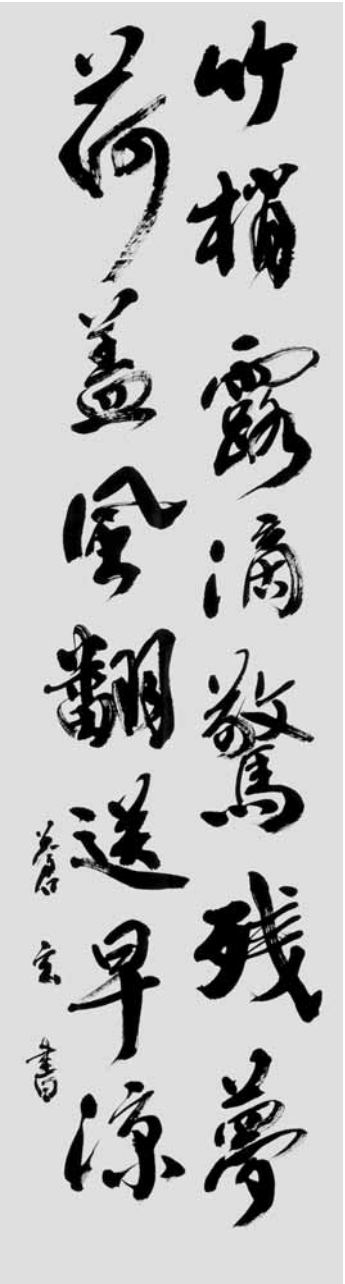 竹梢露滴驚残夢
荷盖風翻送早涼
蒼玄書